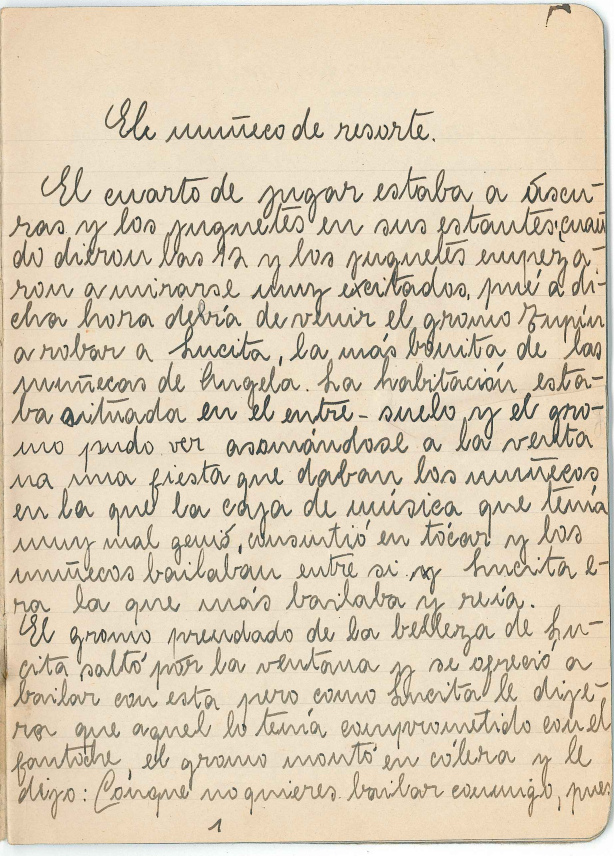 El muñeco de resorte.
El cuarto de jugar estaba a óscu-
ras y los juguetes en sus estantes, cuan
do dieron las 12 y los juguetes empeza-
ron a mirarse muy excitados, pué a di-
cha hora debría de venir el gnomo
a robar a Lucita, la más bonita de las
muñecas de Angela. La habitación esta-
ba situada en el entre-suelo y el gno-
mo pudo ver asomándose a la venta
na una fiesta que daban los muñecos
en la que la caja de música que tenía
muy mal genió, consintió en tócar y los
muñecos bailaban entre si y Lucita e-
ra la que más bailaba y reía.
El gnomo prendado de la belleza de Lu-
cita saltó por la ventana y se ofreció a
bailar con esta pero como Lucita le dije-
ra que aquel lo tenía comprometido con el
fantoche, el gnomo montó en cólera y le
dijo: Cónque no quieres bailar conmigo, pues
1